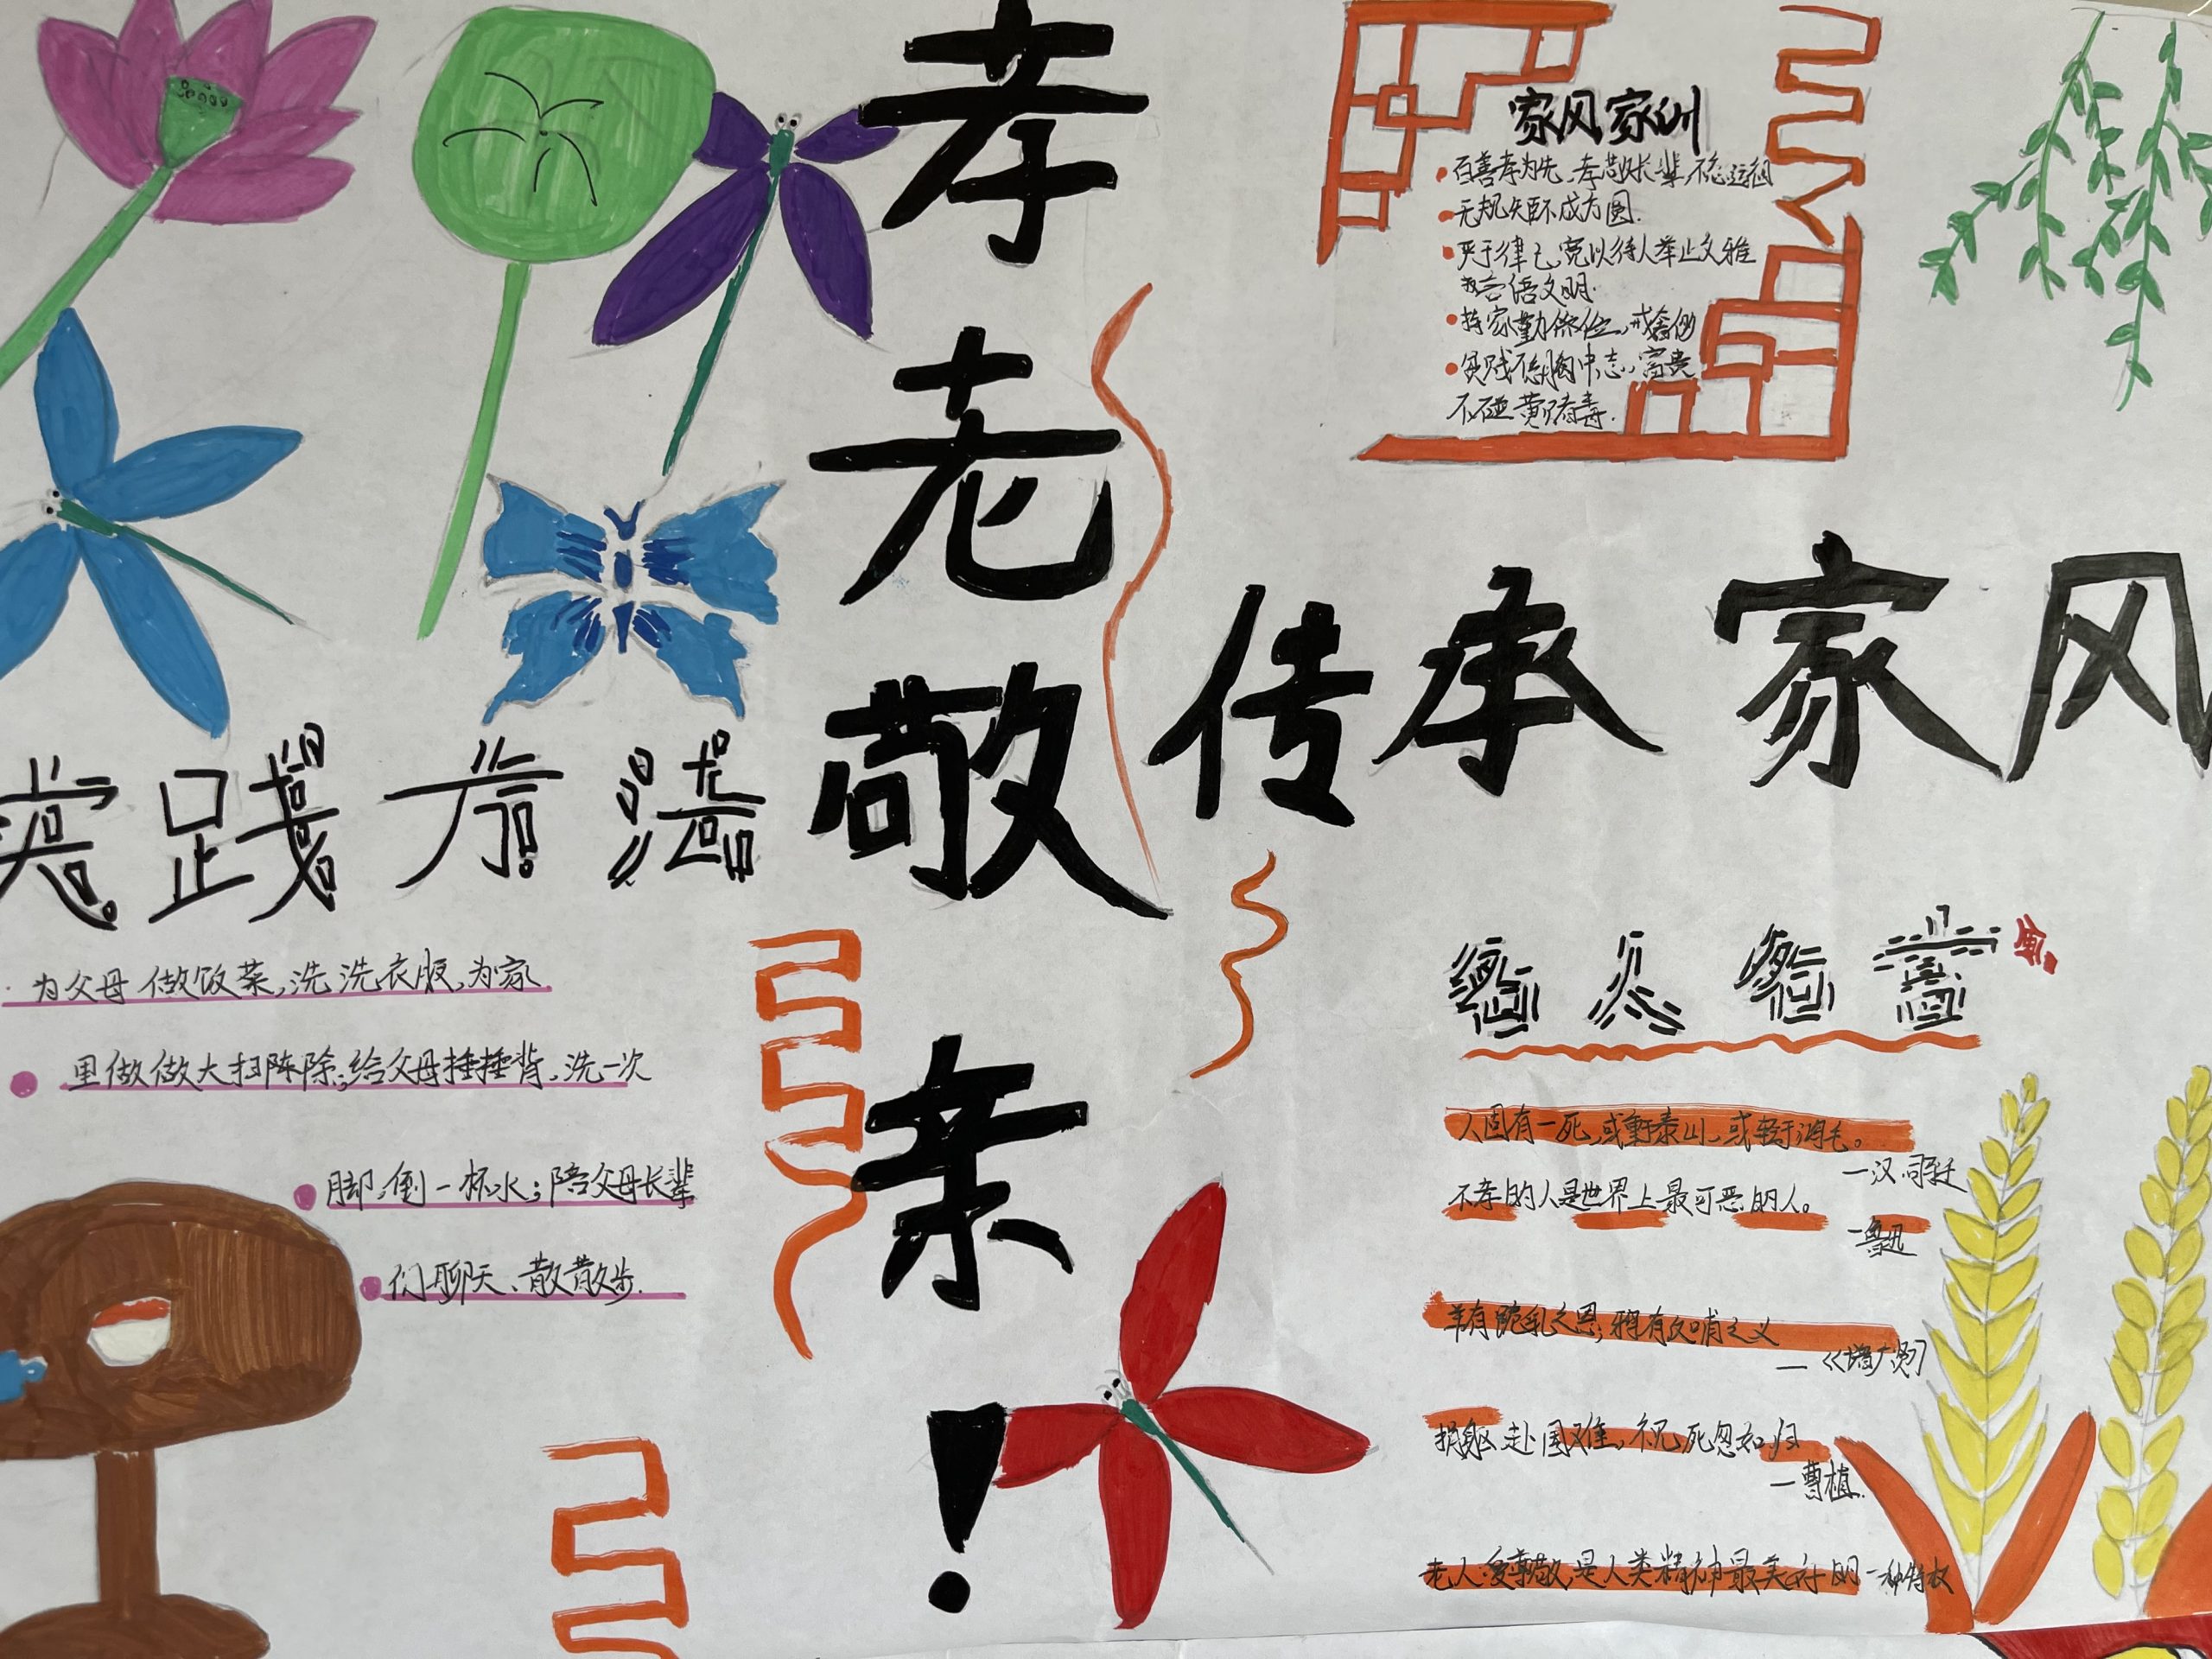 孝老敬亲!
传承家风
家风家训
百善孝为先,孝敬长辈,不忘远祖
无规矩不成方圆.
严于律己,宽以待人举止文雅
言语文明.
持家勤俭,戒奢侈
贫贱不移胸中志,富贵
不碰黄赌毒.
实践方法
为父母做饭菜,洗洗衣服,为家
里做做大扫除;给父母捶捶背,洗一次
脚,倒一杯水;陪父母长辈
们聊天、散散步.
名人名言
人固有一死,或重于泰山,或轻于鸿毛。
一汉.司马迁
不孝的人是世界上最可恶的人。
一鲁迅
羊有跪乳之恩,鸦有反哺之义
—《增广贤》
捐躯赴国难,视死忽如归
一曹植.
老人受尊敬,是人类精神最美好的一种特权